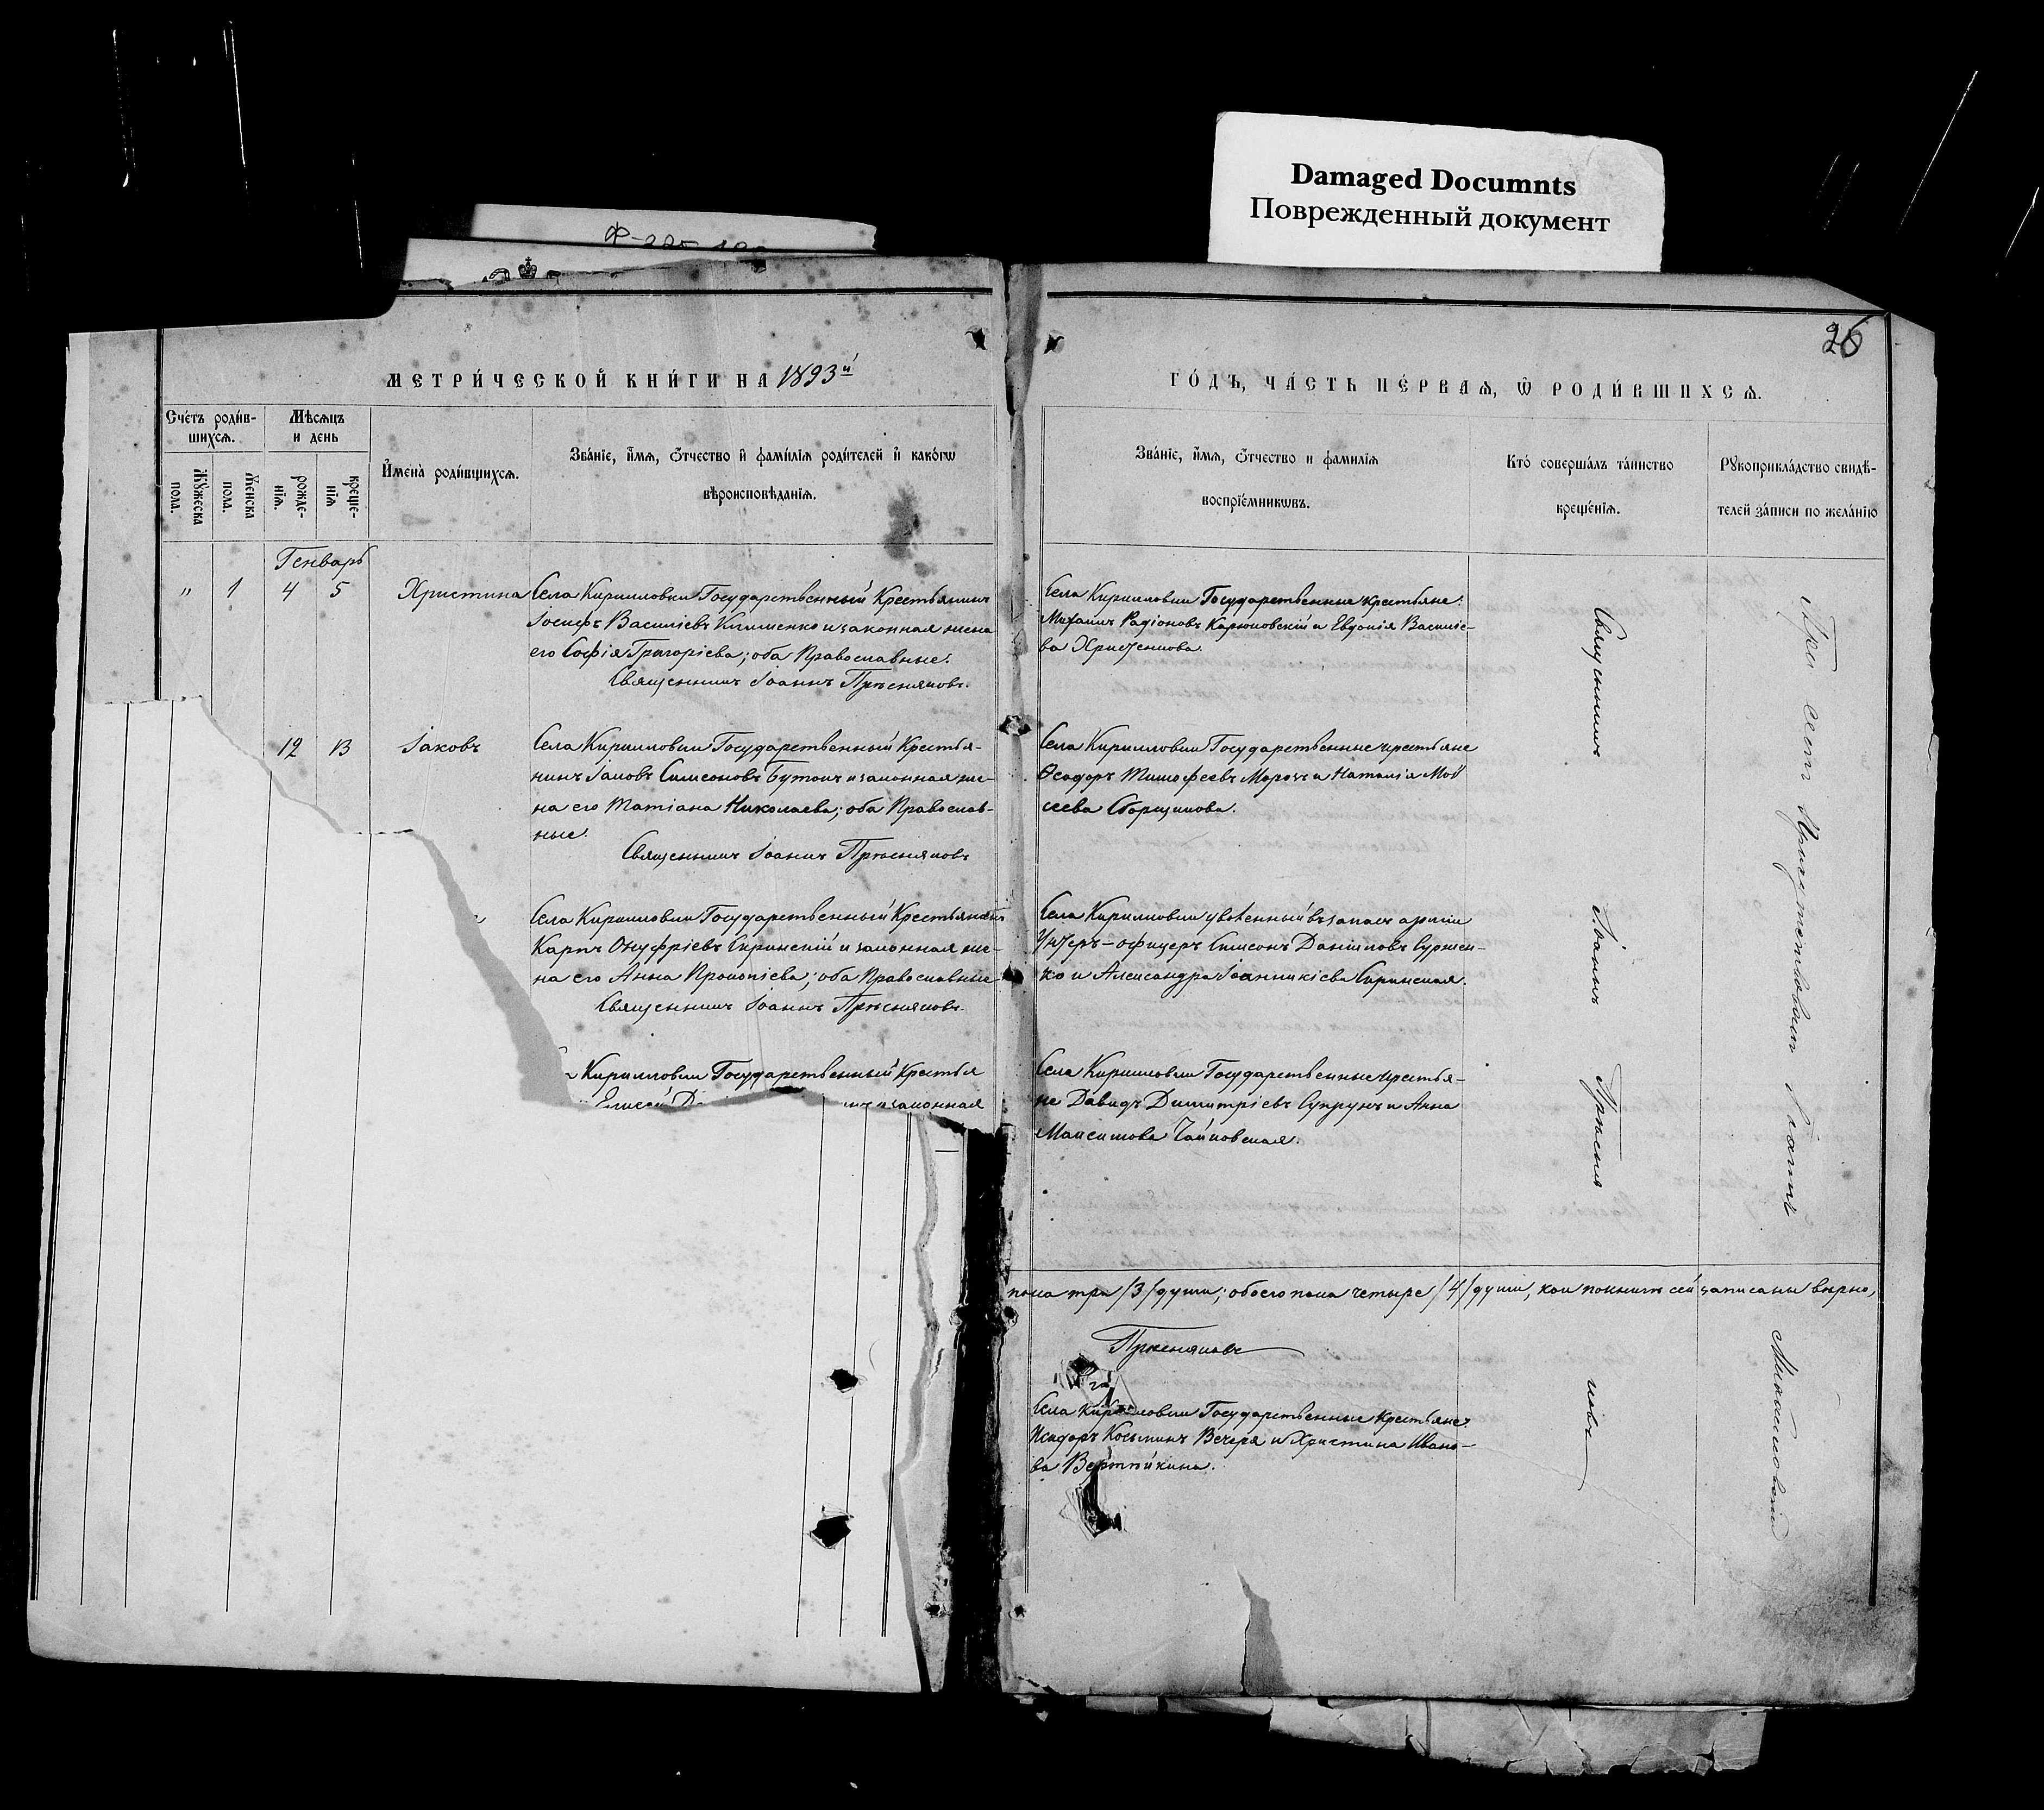 Damaged Documnts
Поврежденный документ
26
МЕТРИ́ЧЕСКОЙ КНИ́ГИ НА 1893й
ГО́ДЪ, ЧА́СТЬ ПЕ́РВАѦ, Ѡ҆ РОДИ́ВШИХСѦ.
Сче́тъ роди́в-
шихсѧ.
Мѣ́сѧцъ
и день
Мꙋ́жеска
пола.
Же́нска
пола.
рожде-
нїѧ.
креще-
нїѧ
И҆мена̀ роди́вшихсѧ.
Зва́нїе, и҆́мѧ, ѻ҆́тчество и҆ фами́лїѧ роди́телей и҆ како́гѡ
вѣроисповѣ́данїѧ.
Зва́нїе, и҆́мѧ, ѻ҆́тчество и фами́лїѧ
воспрїе́мникѡвъ.
Кто̀ соверша́лъ та́инство
креще́нїѧ.
Рꙋкоприкла́дство свидѣ́-
телей за́писи по жела́нїю
Генварь
" 1 4 5 Христина
Села Кирилловки Государственный Крестьянинъ
Іосифъ Василіевъ Клименко и законная жена
его Софія Григоріева; оба Православные.
Священникъ Іоаннъ Прѣсняковъ.
Села Кирилловки Государственные крестьяне:
Михаилъ Радіоновъ и Евдокія Василіе-
ва
12 13 Іаковъ
Села Кирилловки Государственный Крестья-
нинъ Іаковъ Симеоновъ Бутокъ и законная же-
на его Татіана Николаева; оба Православ-
ные.
Священникъ Іоаннъ Прѣсняковъ
Села Кирилловки Государственные крестьяне
Ѳеодоръ Тимофеевъ Морозъ и Наталія Мои
сеева Сборщикова.
Села Кирилловки Государственный Крестьянинъ
Карпъ Онуфріевъ Скринскій и законная же-
на его Анна Прокопіева; оба Православные
Священникъ Іоаннъ Прѣсняковъ.
Села Кирилловки уволенный въ запасъ арміи
Унтеръ-офицеръ Симеонъ Даніиловъ Сурже-
ко и Александра Іоанникіева Скринская.
Кирилловки Государственный Крестья
Елисей и законная
Села Кирилловки Государственные крестья-
не Давидъ Димитріевъ Супрунъ и Анна
Максимова Чайковская.
Священникъ Іоаннъ Прѣсня
ковъ
При семъ
пола три /3/ души; обоего пола четыре /4/ души, кои по книгѣ сей записаны вѣрно,
Прѣсняковъ
Села Кирилловки Государственные Крестьяне
Исидоръ Косьминъ Вечеря и Христина Ивано-
ва